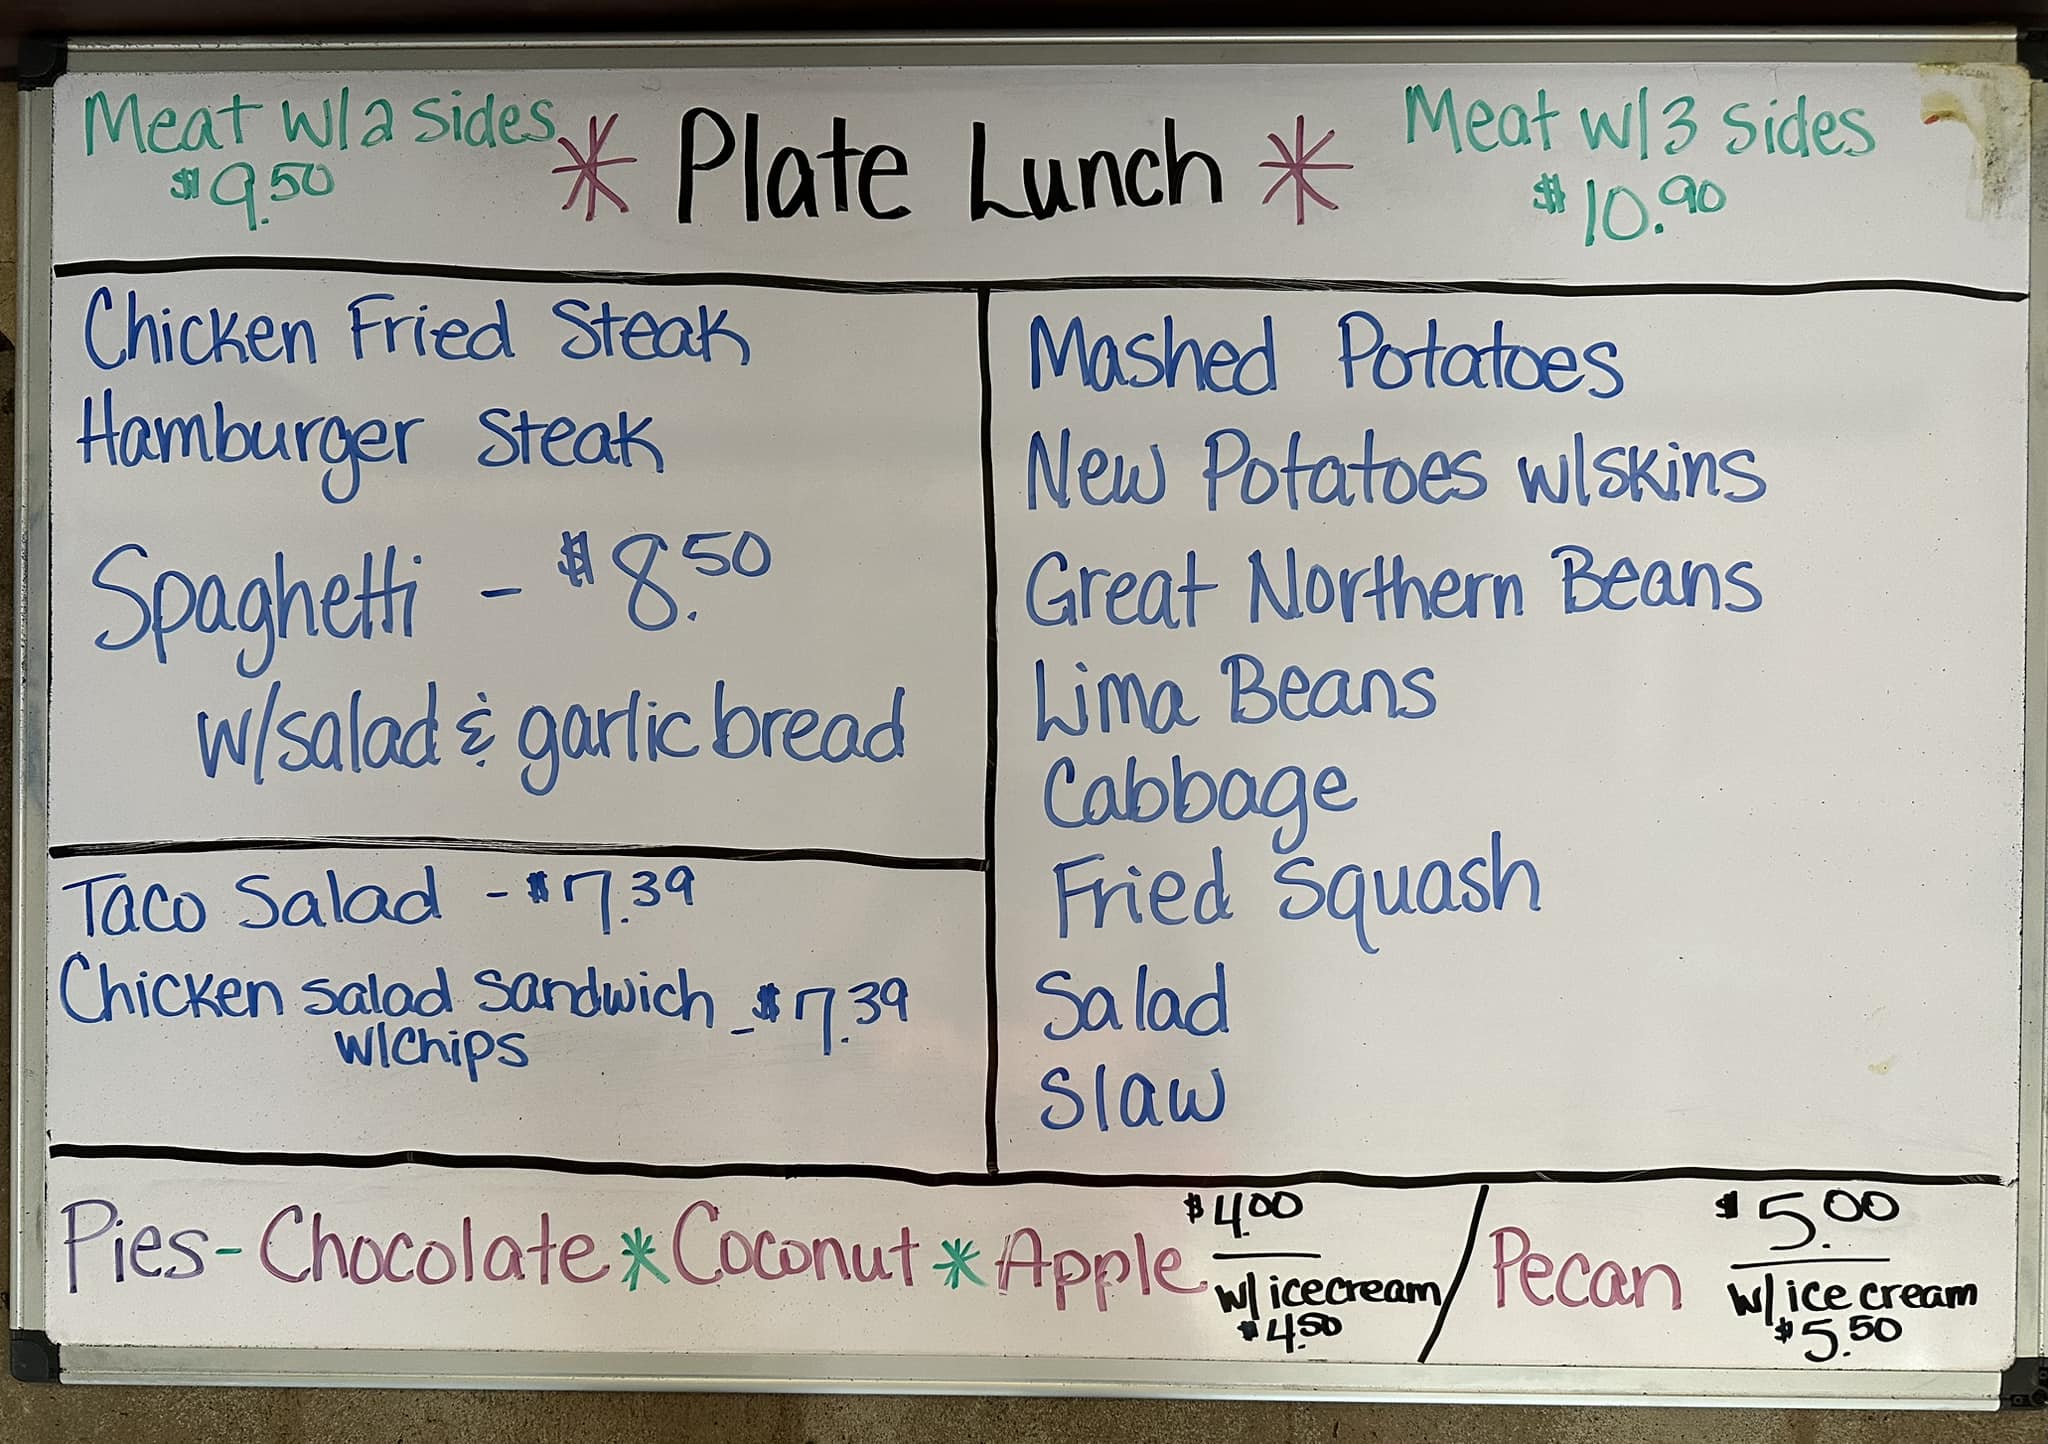 Meat w/2 sides
$9.50
* Plate Lunch *
Meat w/3 sides
$10.90
Chicken Fried Steak
Hamburger Steak
Spaghetti - $8.50
w/salad & garlic bread
Taco Salad - $7.39
Chicken salad sandwich - $7.39
w/chips
Mashed Potatoes
New Potatoes w/skins
Great Northern Beans
Lima Beans
Cabbage
Fried Squash
Salad
Slaw
Pies - Chocolate * Coconut * Apple $4.00 / Pecan $5.00
w/ icecream w/ ice cream
$4.50 $5.50